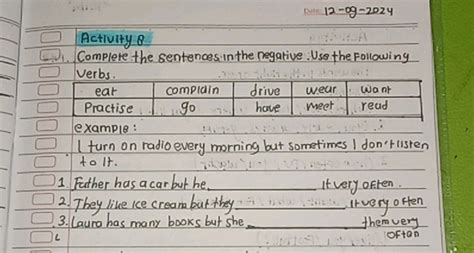 Date: 12-09-2024
Activity 8
Complete the sentences in the negative. Use the Following
Verbs.
eat complain drive wear want
Practise go have meet read
example:
I turn on radio every morning but sometimes I don't listen
to It.
1. Father has a car but he It very often.
2. They like Ice cream but they It very often
3. Laura has many books but she them very
often